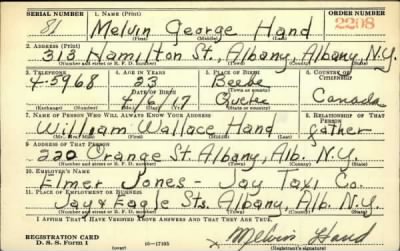 SERIAL NUMBER 1. NAME (Print) ORDER NUMBER
81 Melvin George Hand 2208
(First) (Middle) (Last)
2. ADDRESS (Print)
318 Hamilton St., Albany, Albany N.Y.
(Number and street or R. F. D. number) (Town) (County) (State)
3. TELEPHONE 4. AGE IN YEARS 5. PLACE OF BIRTH 6. COUNTRY OF CITIZENSHIP
4-5968 23 Beebe
DATE OF BIRTH (Town or county)
4/6/17 Quebec Canada
(Exchange) (Number) (Mo.) (Day) (Yr.) (State or country)
7. NAME OF PERSON WHO WILL ALWAYS KNOW YOUR ADDRESS 8. RELATIONSHIP OF THAT PERSON
William Wallace Hand father
(Mr., Mrs., Miss) (First) (Middle) (Last)
9. ADDRESS OF THAT PERSON
220 Orange St. Albany, Alb. N.Y.
(Number and street or R. F. D. number) (Town) (County) (State)
10. EMPLOYER'S NAME
Elmer Jones - Jay Taxi Co.
11. PLACE OF EMPLOYMENT OR BUSINESS
Jay & Eagle Sts. Albany, Alb. N.Y.
(Number and street or R. F. D. number) (Town) (County) (State)
I AFFIRM THAT I HAVE VERIFIED ABOVE ANSWERS AND THAT THEY ARE TRUE.
REGISTRATION CARD
D. S. S. Form 1 16—17105 Melvin Hand
(Registrant's signature)